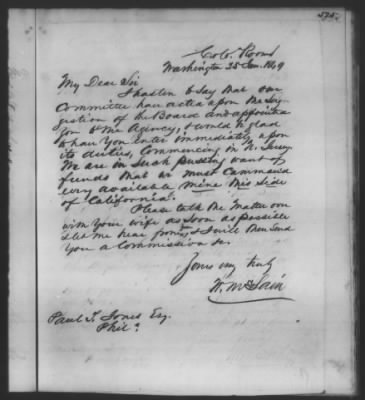 575.
Col. Rooms
Washington 25 Jan. 1849
My Dear Sir
I hasten to say that our
Committee have acted upon the Sug-
gestion of the Board and appointed
you to the Agency, & would be glad
to have you enter immediately upon
its duties, Commencing in N. Jersey.
We are in such pressing want of
funds that we must command
every available mine this side
of California!
Please talk the matter over
with your wife as soon as possible
& let me hear from you, & I will then send
you a Commission &c.
Yours very truly
W. McLain
Paul T. Jones Esq.
Phila